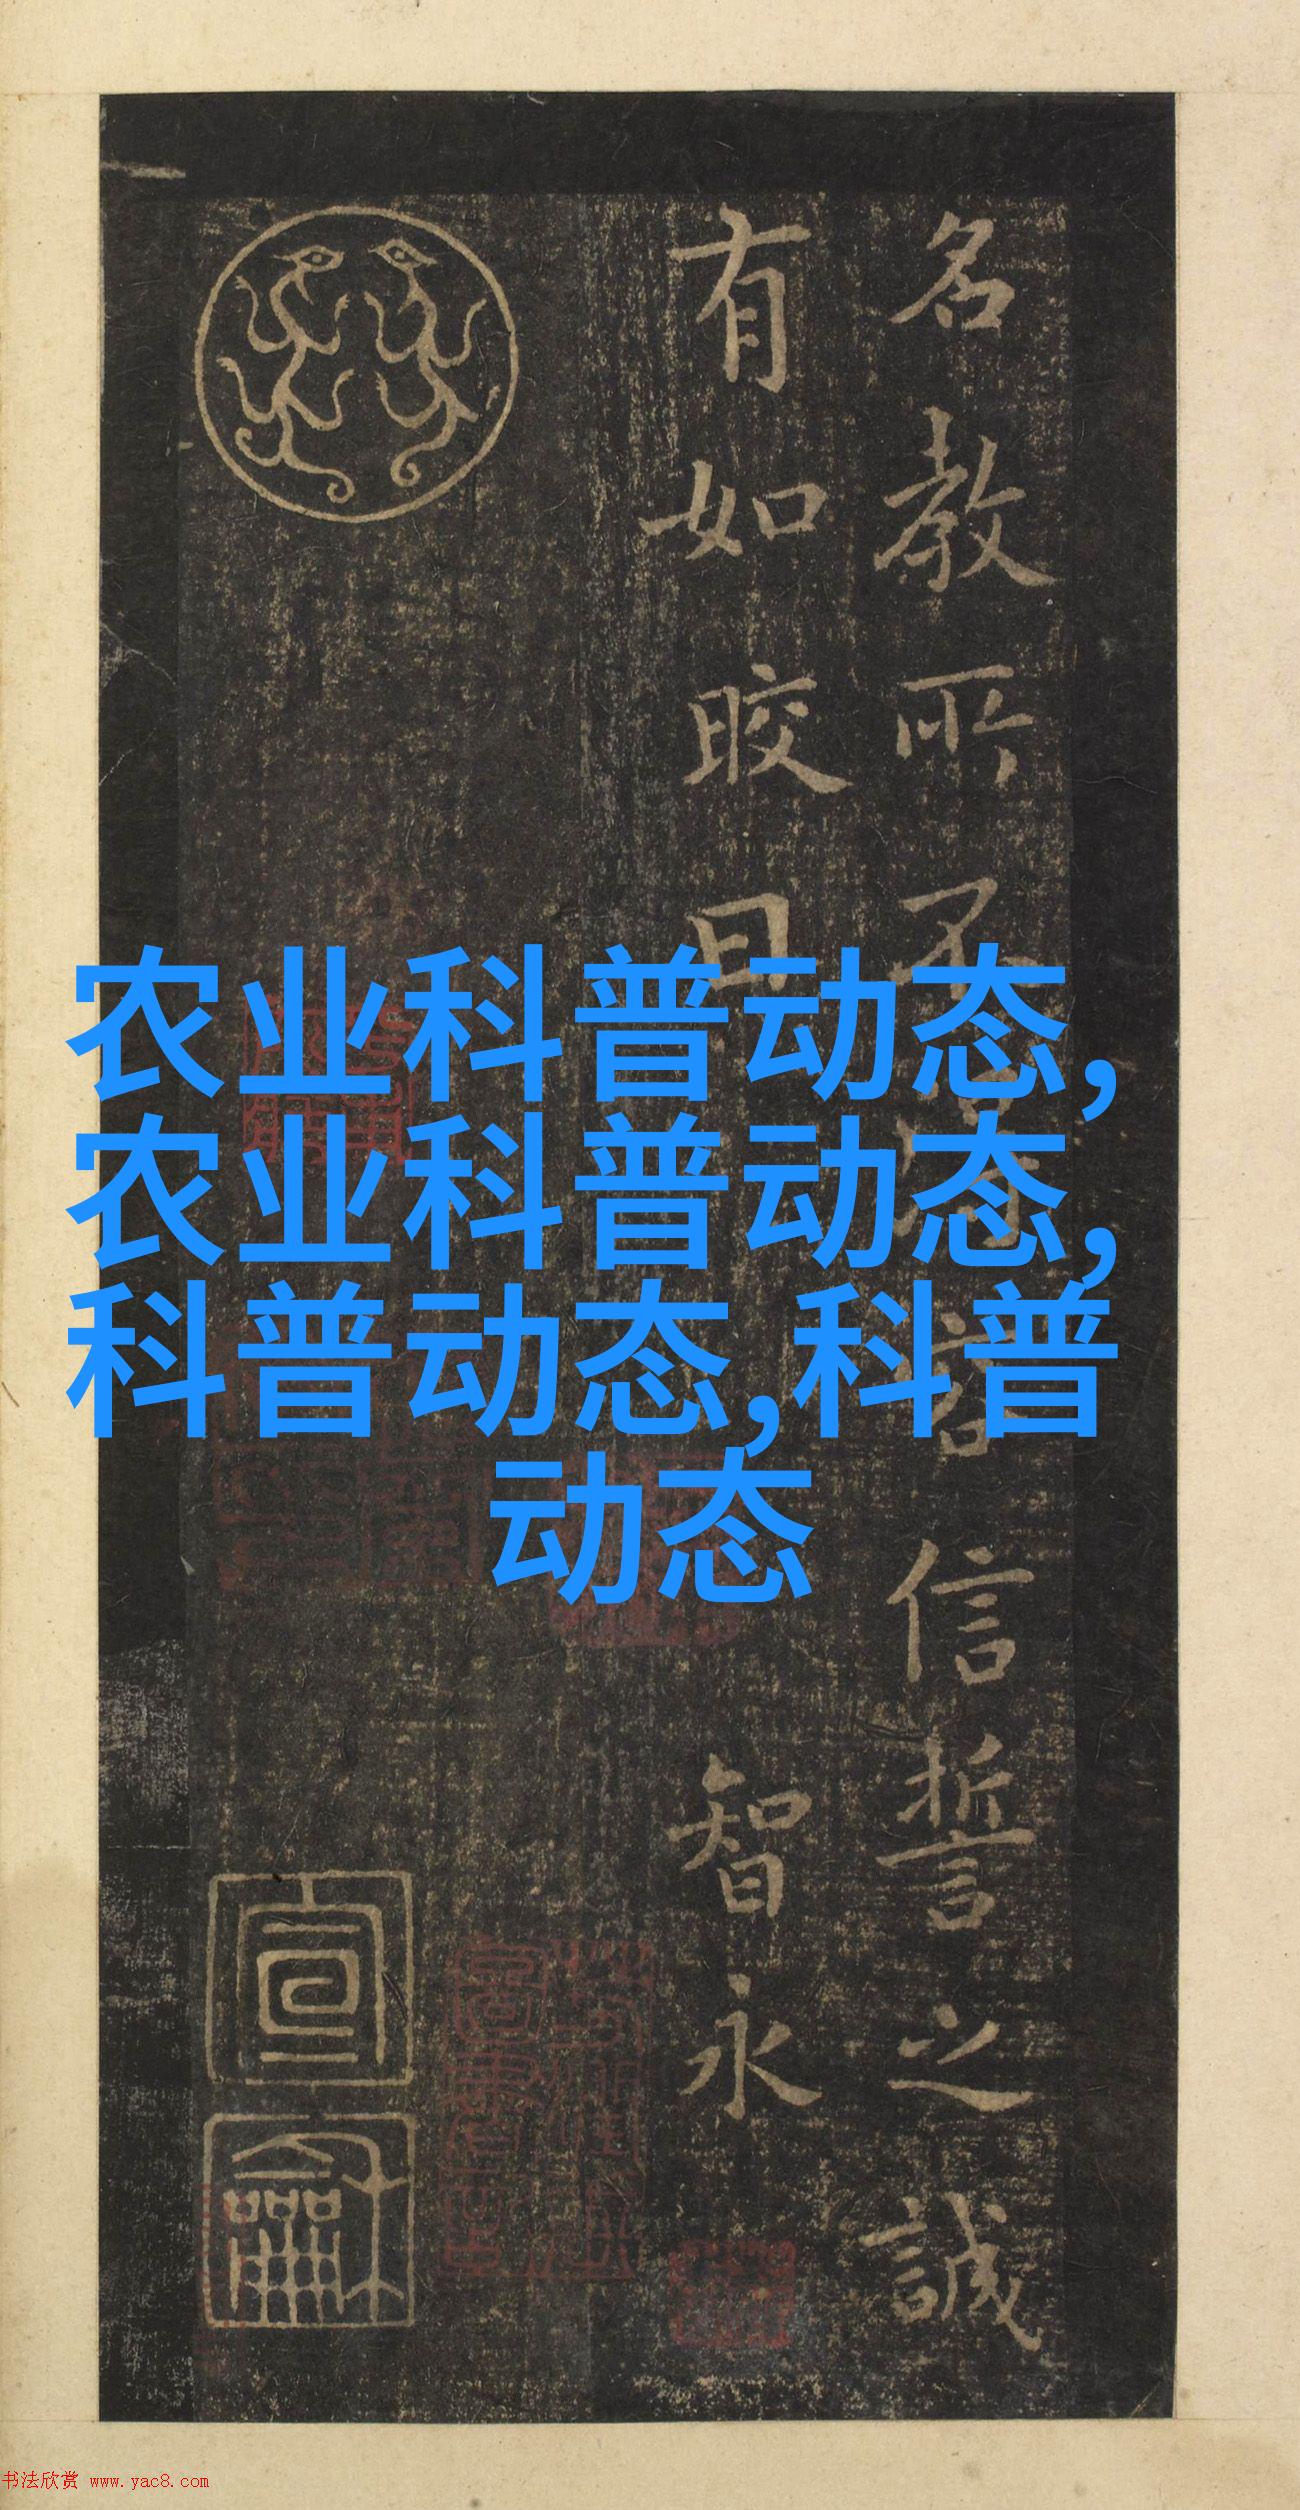 名教所不容信誓之誠
有如晈日
智永
宣
龢
农业科普动态,
农业科普动态,
科普动态,科普
动态
书法欣赏 www.yac8.com